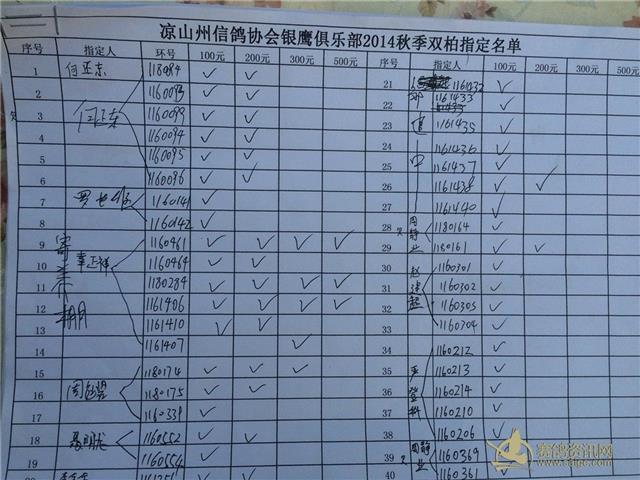 凉山州信鸽协会银鹰俱乐部2014秋季双柏指定名单
序号 指定人 环号 100元 200元 300元 500元
1 何正东 1118084 ✓ ✓
2 1160093 ✓ ✓
3 何正东 1160099 ✓ ✓
4 1160094 ✓ ✓
5 1160095 ✓ ✓
6 1160096 ✓ ✓
7 1160141 ✓
8 1160142 ✓
9 1160461 ✓ ✓ ✓ ✓
10 1160464 ✓ ✓
11 1180284 ✓ ✓ ✓ ✓
12 1161406 ✓ ✓ ✓ ✓
13 1161410 ✓ ✓
14 1161407 ✓
15 1180174 ✓ ✓ ✓
16 1180175 ✓ ✓ ✓
17 1160339 ✓
18 1160552 ✓ ✓
19 1160554 ✓
20
序号 指定人 100元 200元 300元 500元
21 1161432 ✓
22 1161433 ✓
23 1161435 ✓
24 1161436 ✓
25 1161437 ✓
26 1161438 ✓ ✓
27 1161440 ✓
28 周静业 1180164 ✓
29 1180161 ✓ ✓
30 1160301 ✓
31 1160302 ✓
32 1160303 ✓
33 1160304 ✓
34 1160212 ✓
35 严登科 1160213 ✓
36 1160214 ✓
37 1160210 ✓
38 1160206 ✓
39 周静业 1160369 ✓
40 1160361 ✓
赛鸽资讯网